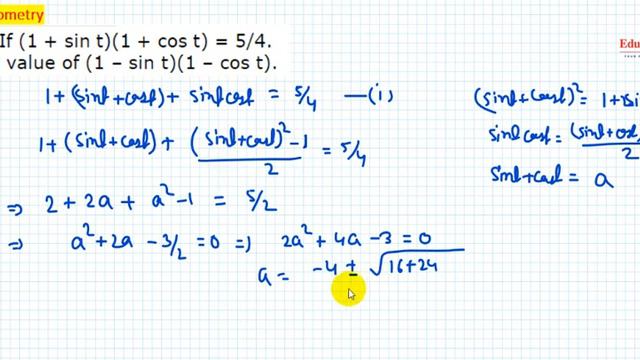 ometry
If (1 + sin t)(1 + cos t) = 5/4.
value of (1 – sin t)(1 – cos t).
Edu
1 + (sint + cost) + sint cost = 5/4 —(i)
1 + (sint + cost) + (sint + cost)² - 1 / 2 = 5/4
⇒ 2 + 2a + a² - 1 = 5/2
⇒ a² + 2a - 3/2 = 0 ⇒ 2a² + 4a - 3 = 0
a = -4 ± √16+24
(sint + cost)² = 1 +
sint cost = (sint + cost / 2
sint + cost = a